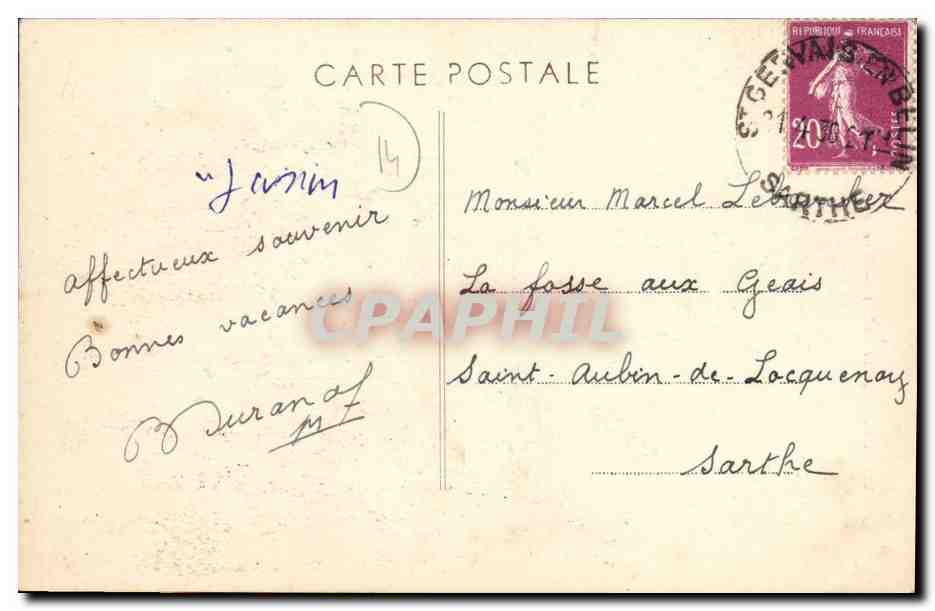 CARTE POSTALE
RÉPUBLIQUE FRANÇAISE
20
POSTES
ST GERVAIS-EN-BELIN
SARTHE
14
Affectueux souvenir
Bonnes vacances
Durand
Monsieur Marcel
La fosse aux Geais
Saint-Aubin-de-Locquenay
Sarthe
CPAPHIL